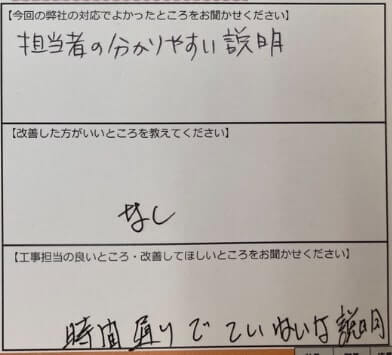 【今回の弊社の対応でよかったところをお聞かせください】
担当者の分かりやすい説明
【改善した方がいいところを教えてください】
なし
【工事担当の良いところ・改善してほしいところをお聞かせください】
時間通りでていねいな説明